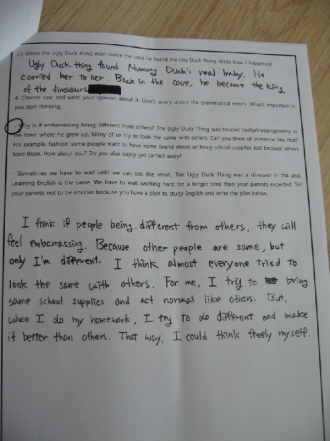 C3 When the Ugly Duck Thing went inside the cave he found the tiny Duck Thing. Write how it happened.
Ugly Duck thing found Mummy Duck's real baby. He
carried her to her. Back in the cave, he became the king
of the dinosaurs
4. Choose one and write your opinion about it. Don't worry about the grammatical errors. What's important is
you start thinking.
Why is it embarrassing being different from others? The Ugly Duck Thing was treated badly/inappropriately in
the town where he grew up. Many of us try to look the same with others. Can you think of someone like that?
For example, fashion: some people want to have name brand shoes or fancy school supplies just because others
have them. How about you? Do you also easily get carried away?
- Sometimes we have to wait until we can see the result. The Ugly Duck Thing was a dinosaur in the end.
Learning English is the same. We have to wait working hard for a longer time than your parents expected. Tell
your parents not to be anxious because you have a plan to study English and write the plan below.
I think if people being different from others, they will
feel embarrassing. Because other people are same, but
only I'm different. I think almost everyone tried to
look the same with others. For me, I try to bring
same school supplies and act normal like others. But,
when I do my homework, I try to do different and make
it better than others. That way, I could think freely myself.